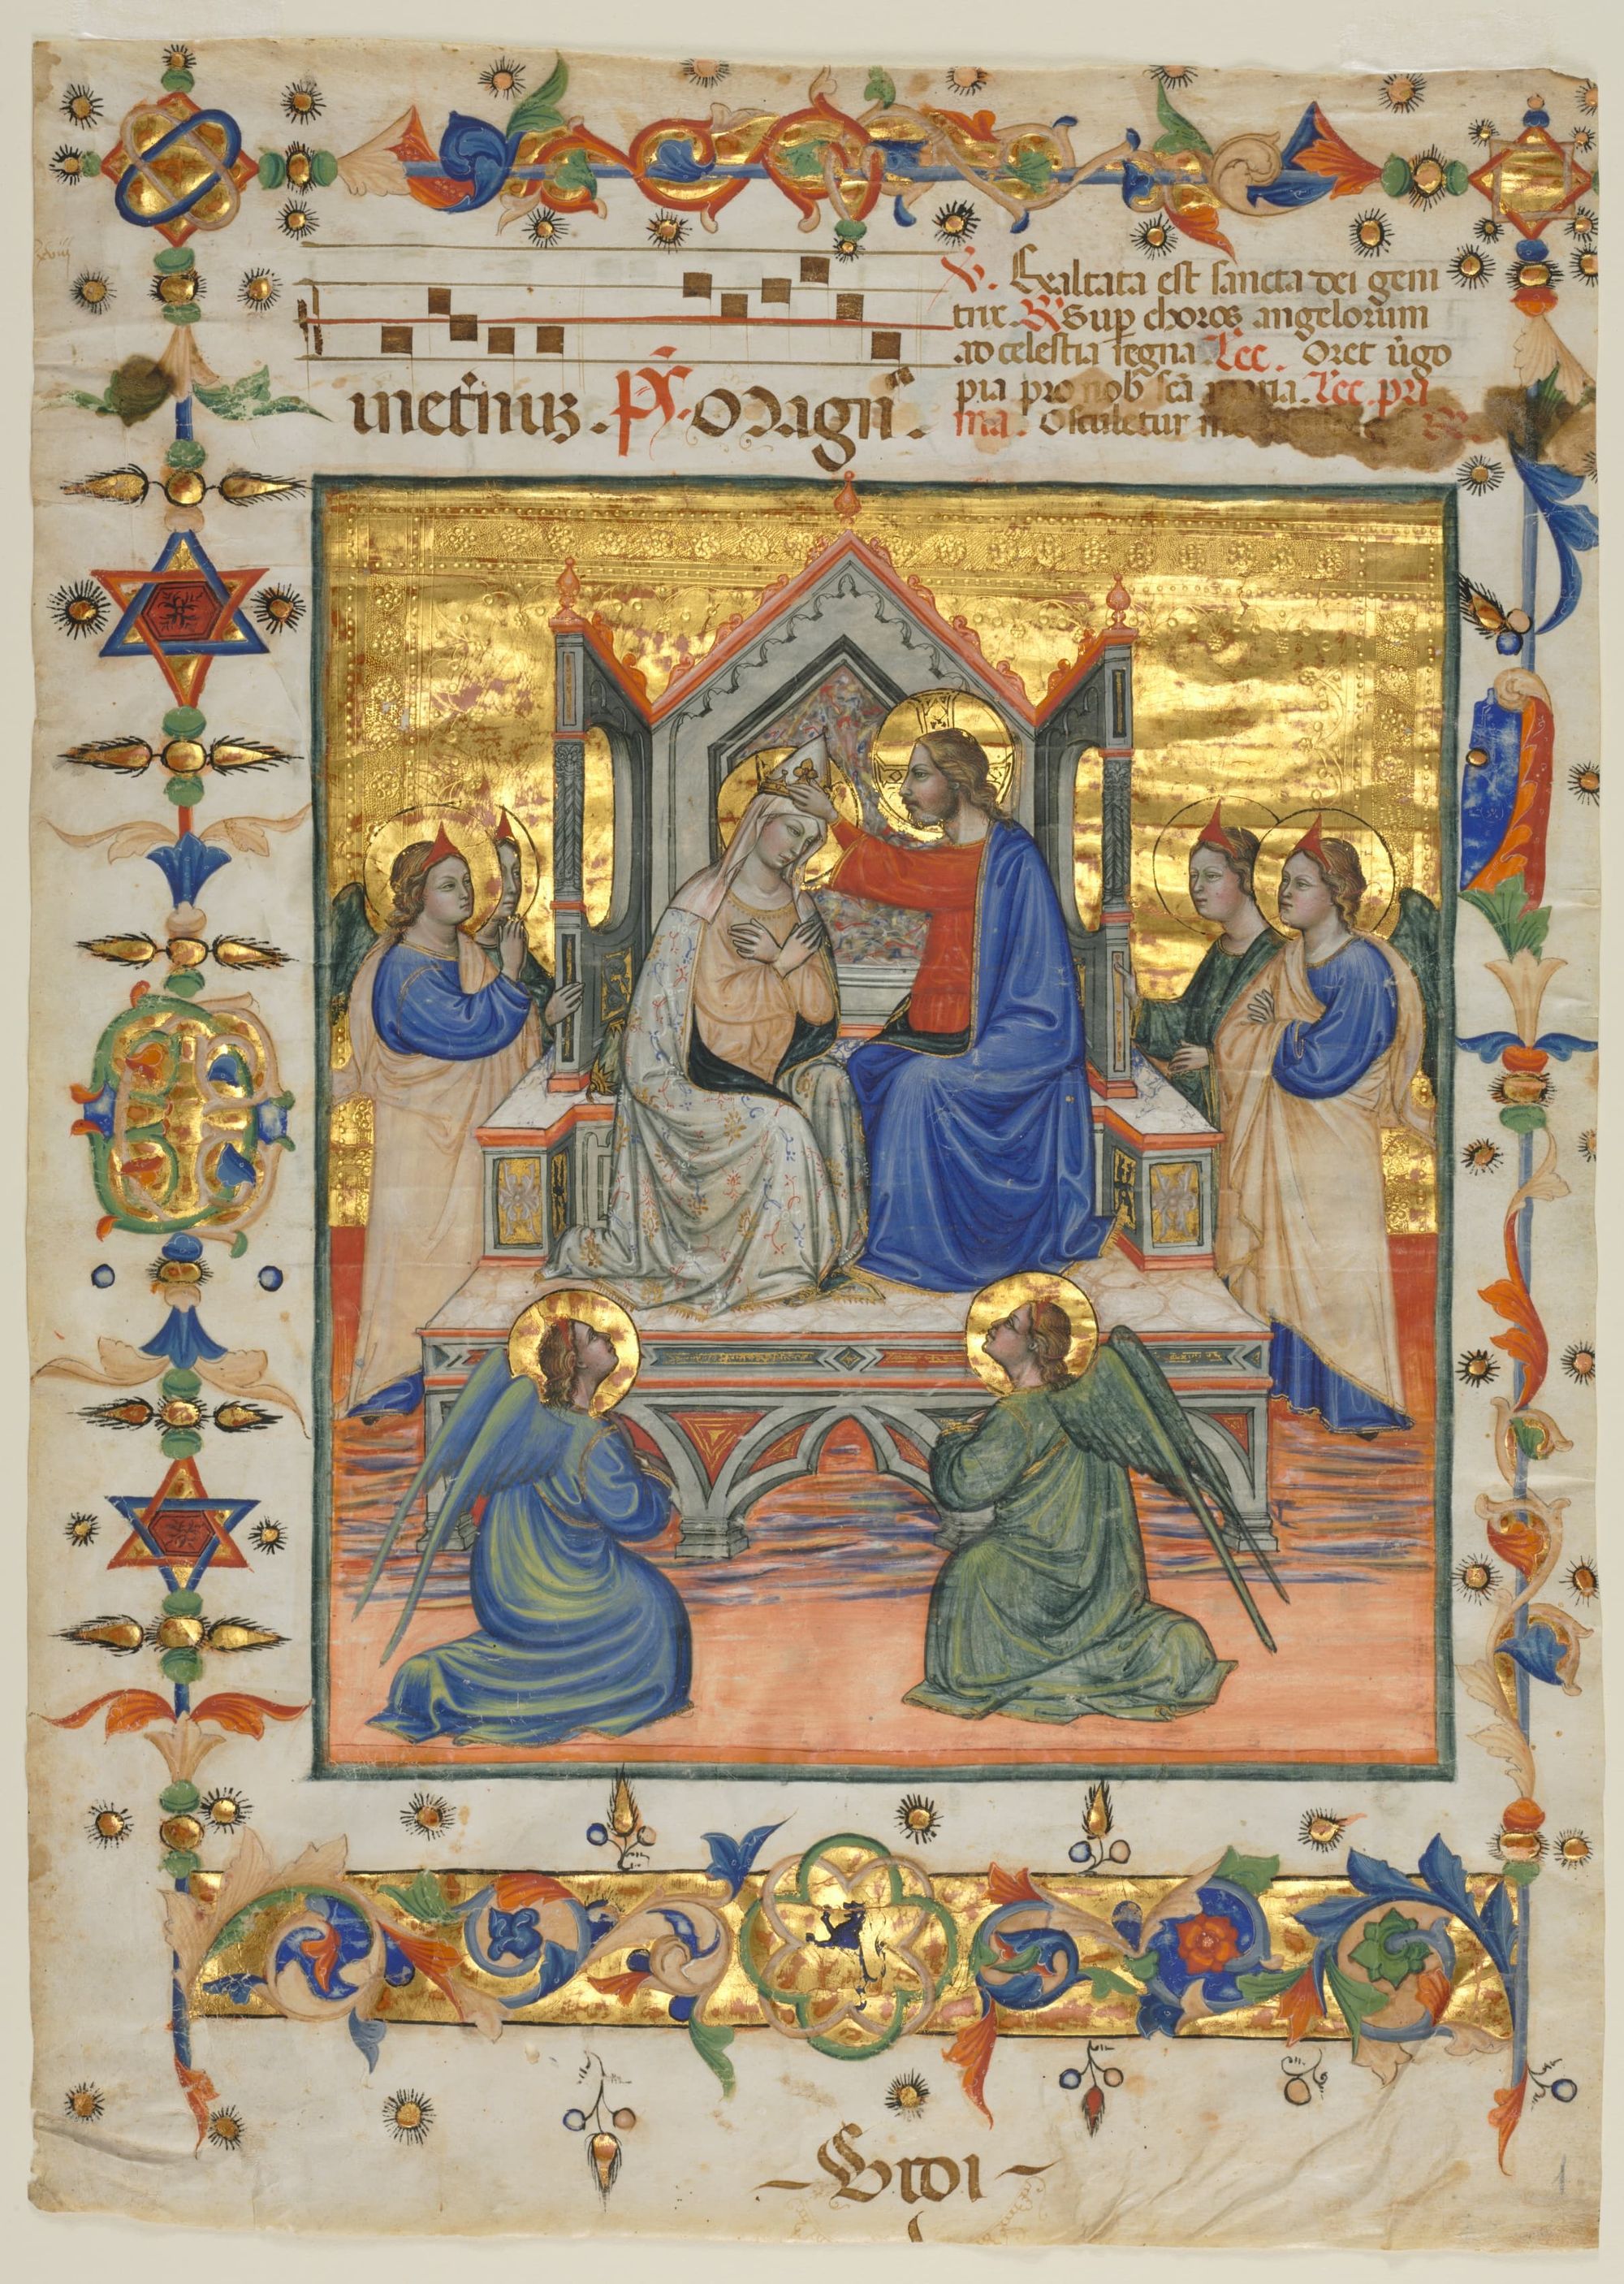 meternus. Ps. Magnꝰ.
V. Exaltata est sancta dei geni
trix. R Sup choros angelorum
ad celestia regna. Lec. Oret v̄go
pia pro nob̄ scā maria. Lec. pri
ma. Osculetur me
- Vidi -